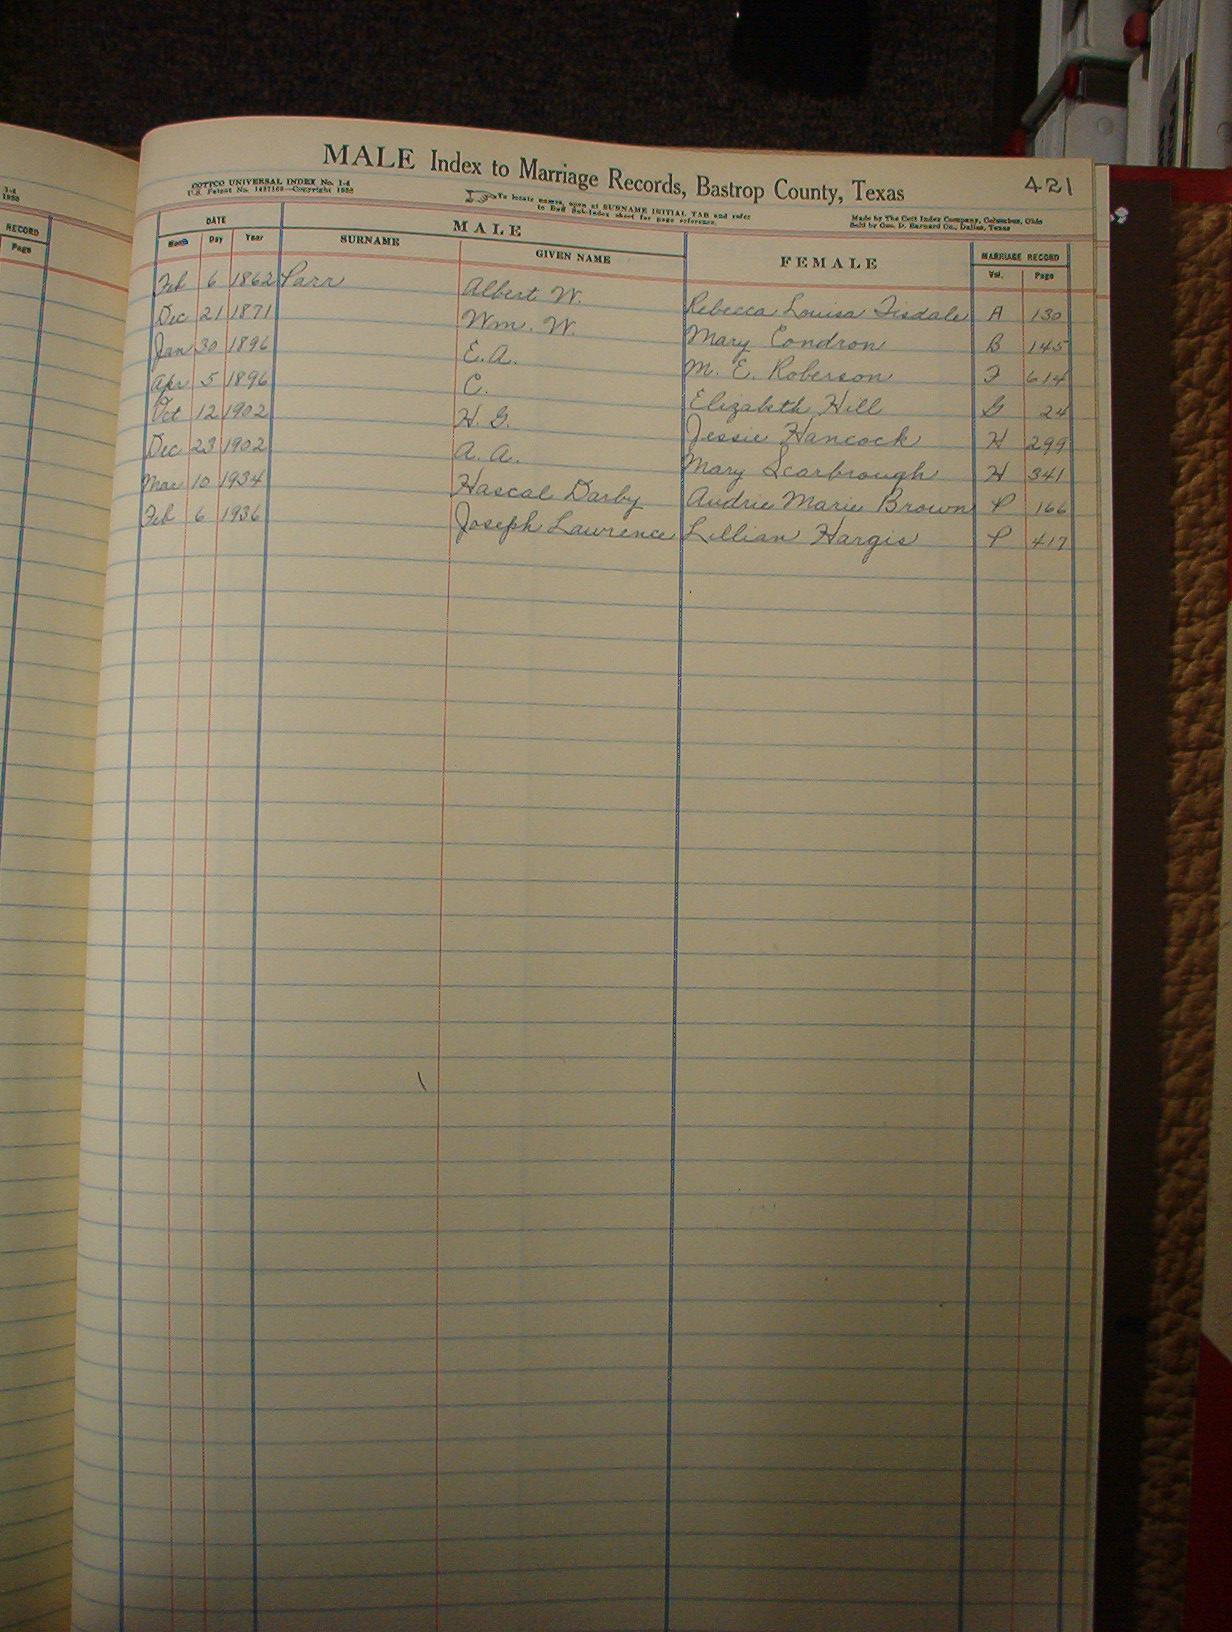 MALE Index to Marriage Records, Bastrop County, Texas 421
COTTCO UNIVERSAL INDEX No. 1-4
U.S. Patent No. 1457169—Copyright 1928
To locate names, open at SURNAME INITIAL TAB and refer
to End Sub-Index sheet for page reference.
Made by The Cott Index Company, Columbus, Ohio
Sold by Geo. D. Barnard Co., Dallas, Texas
1-4
1928
RECORD
Page
DATE MALE FEMALE MARRIAGE RECORD
Month Day Year SURNAME GIVEN NAME Vol. Page
Feb 6 1862 Parr Albert W. Rebecca Louisa Tisdale A 130
Dec 21 1871 Wm. W. Mary Condron B 145
Jan 30 1896 E. A. M. E. Roberson F 614
Apr 5 1896 C. Elizabeth Hill G 24
Oct 12 1902 H. G. Jessie Hancock H 299
Dec 23 1902 A. A. Mary Scarbrough H 341
Mar 10 1934 Hascal Darby Audrie Marie Brown P 166
Feb 6 1936 Joseph Lawrence Lillian Hargis P 417